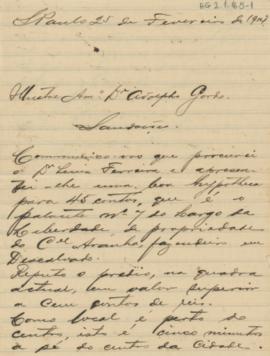 AG 2.1.65-1
S. Paulo 25 de Fevereiro de 190
Illustre Amº Dr Adolpho Gordo
Saudações.
Communico-vos que procurei
o Dr Ferreira e apresen
tei-lhe uma boa hypotheca
para 45 contos, que é o
palacete nº 7 do largo da
Liberdade, de propriedade
do Cel Aranha fazendeiro em
Descalvado.
Reputo o predio, na quadra
actual, em valor superior
a cem contos de reis.
Como local é perto do
centro, isto é cinco minutos
a pé do centro da Cidade.